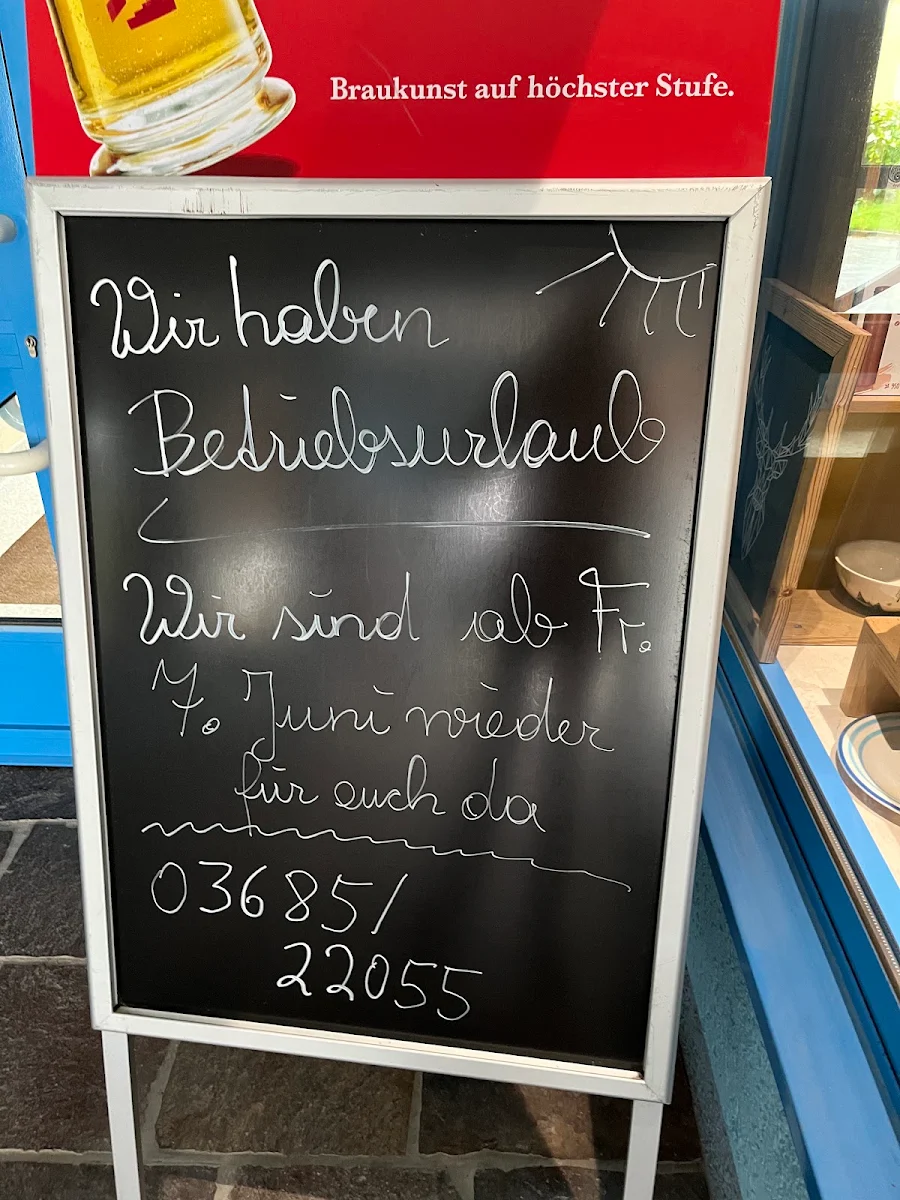 Braukunst auf höchster Stufe.
Wir haben
Betriebsurlaub
Wir sind ab Fr.
7. Juni wieder
für euch da
03685/
22055